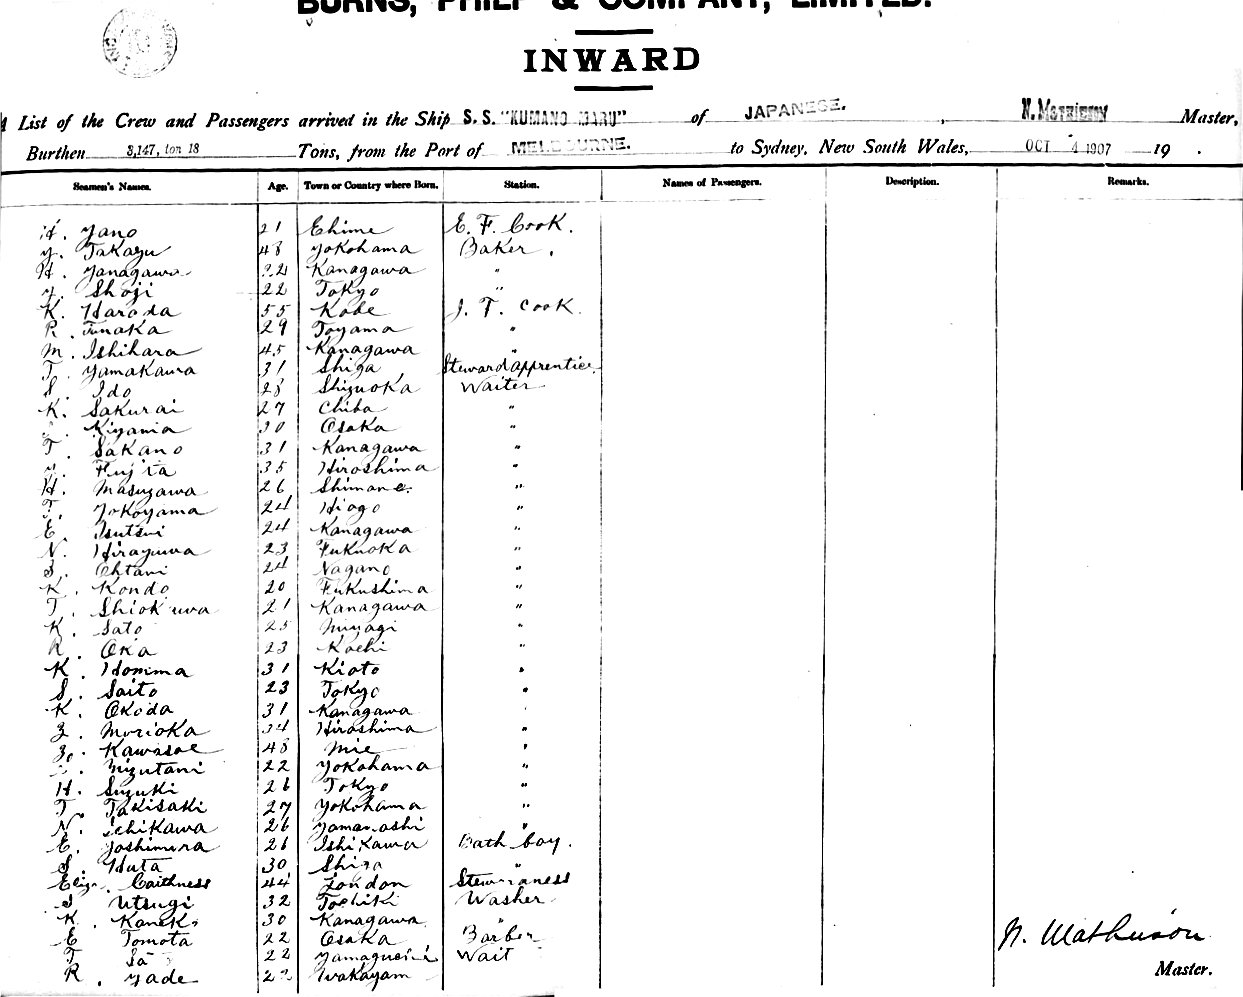 BURNS, PHILP & COMPANY, LIMITED.
INWARD
A List of the Crew and Passengers arrived in the Ship S.S. "KUMANO MARU" of JAPANESE. , Master,
Burthen 3,147, ton 18 Tons, from the Port of MELBOURNE. to Sydney, New South Wales, OCT 4 1907 19 .
Seamen's Names. Age. Town or Country where Born. Station. Names of Passengers. Description. Remarks.
H. Yano 21 Ehime E. F. Cook.
Y. Takayu 48 Yokohama Baker .
H. Yanagawa 22 Kanagawa "
Y. Shoji 22 Tokyo "
K. Harada 55 Kobe J. T. Cook.
R. Tanaka 29 Toyama "
M. Ishihara 45 Kanagawa "
T. Yamakawa 31 Shiga Steward apprentice.
S. Ido 28 Shizuoka Waiter
K. Sakurai 27 Chiba "
Kiyama 30 Osaka "
T. Sakano 31 Kanagawa "
Y. Fujita 35 Hiroshima "
H. Masuzawa 26 Shimane. "
T. Yokoyama 24 Hiogo "
E. Tsutsui 24 Kanagawa "
N. Hirayama 23 Fukuoka "
S. Ohtani 24 Nagano "
K. Kondo 20 Fukushima "
T. 21 Kanagawa "
K. Sato 25 Miyagi "
R. Oka 23 Kochi "
K. 31 Kioto "
S. Saito 23 Tokyo "
K. Okoda 31 Kanagawa
Z. Morioka 34 Hiroshima "
Kawasae 48 Mie "
Mizutani 22 Yokohama "
H. Suzuki 26 Tokyo "
T. Takisaki 27 Yokohama "
N. Ichikawa 26 Yamanashi "
E. Yoshimura 26 Ishikawa Bath boy.
S. Huta 30 Shiga "
Eliza. Caithness 44 London Stewardness
S Utsugi 32 Tochiki Washer
K. Kaneko 30 Kanagawa "
E Tomota 22 Osaka Barber
T 22 Yamaguchi Wait
R. Yade 22 Wakayam
N. Mathieson
Master.